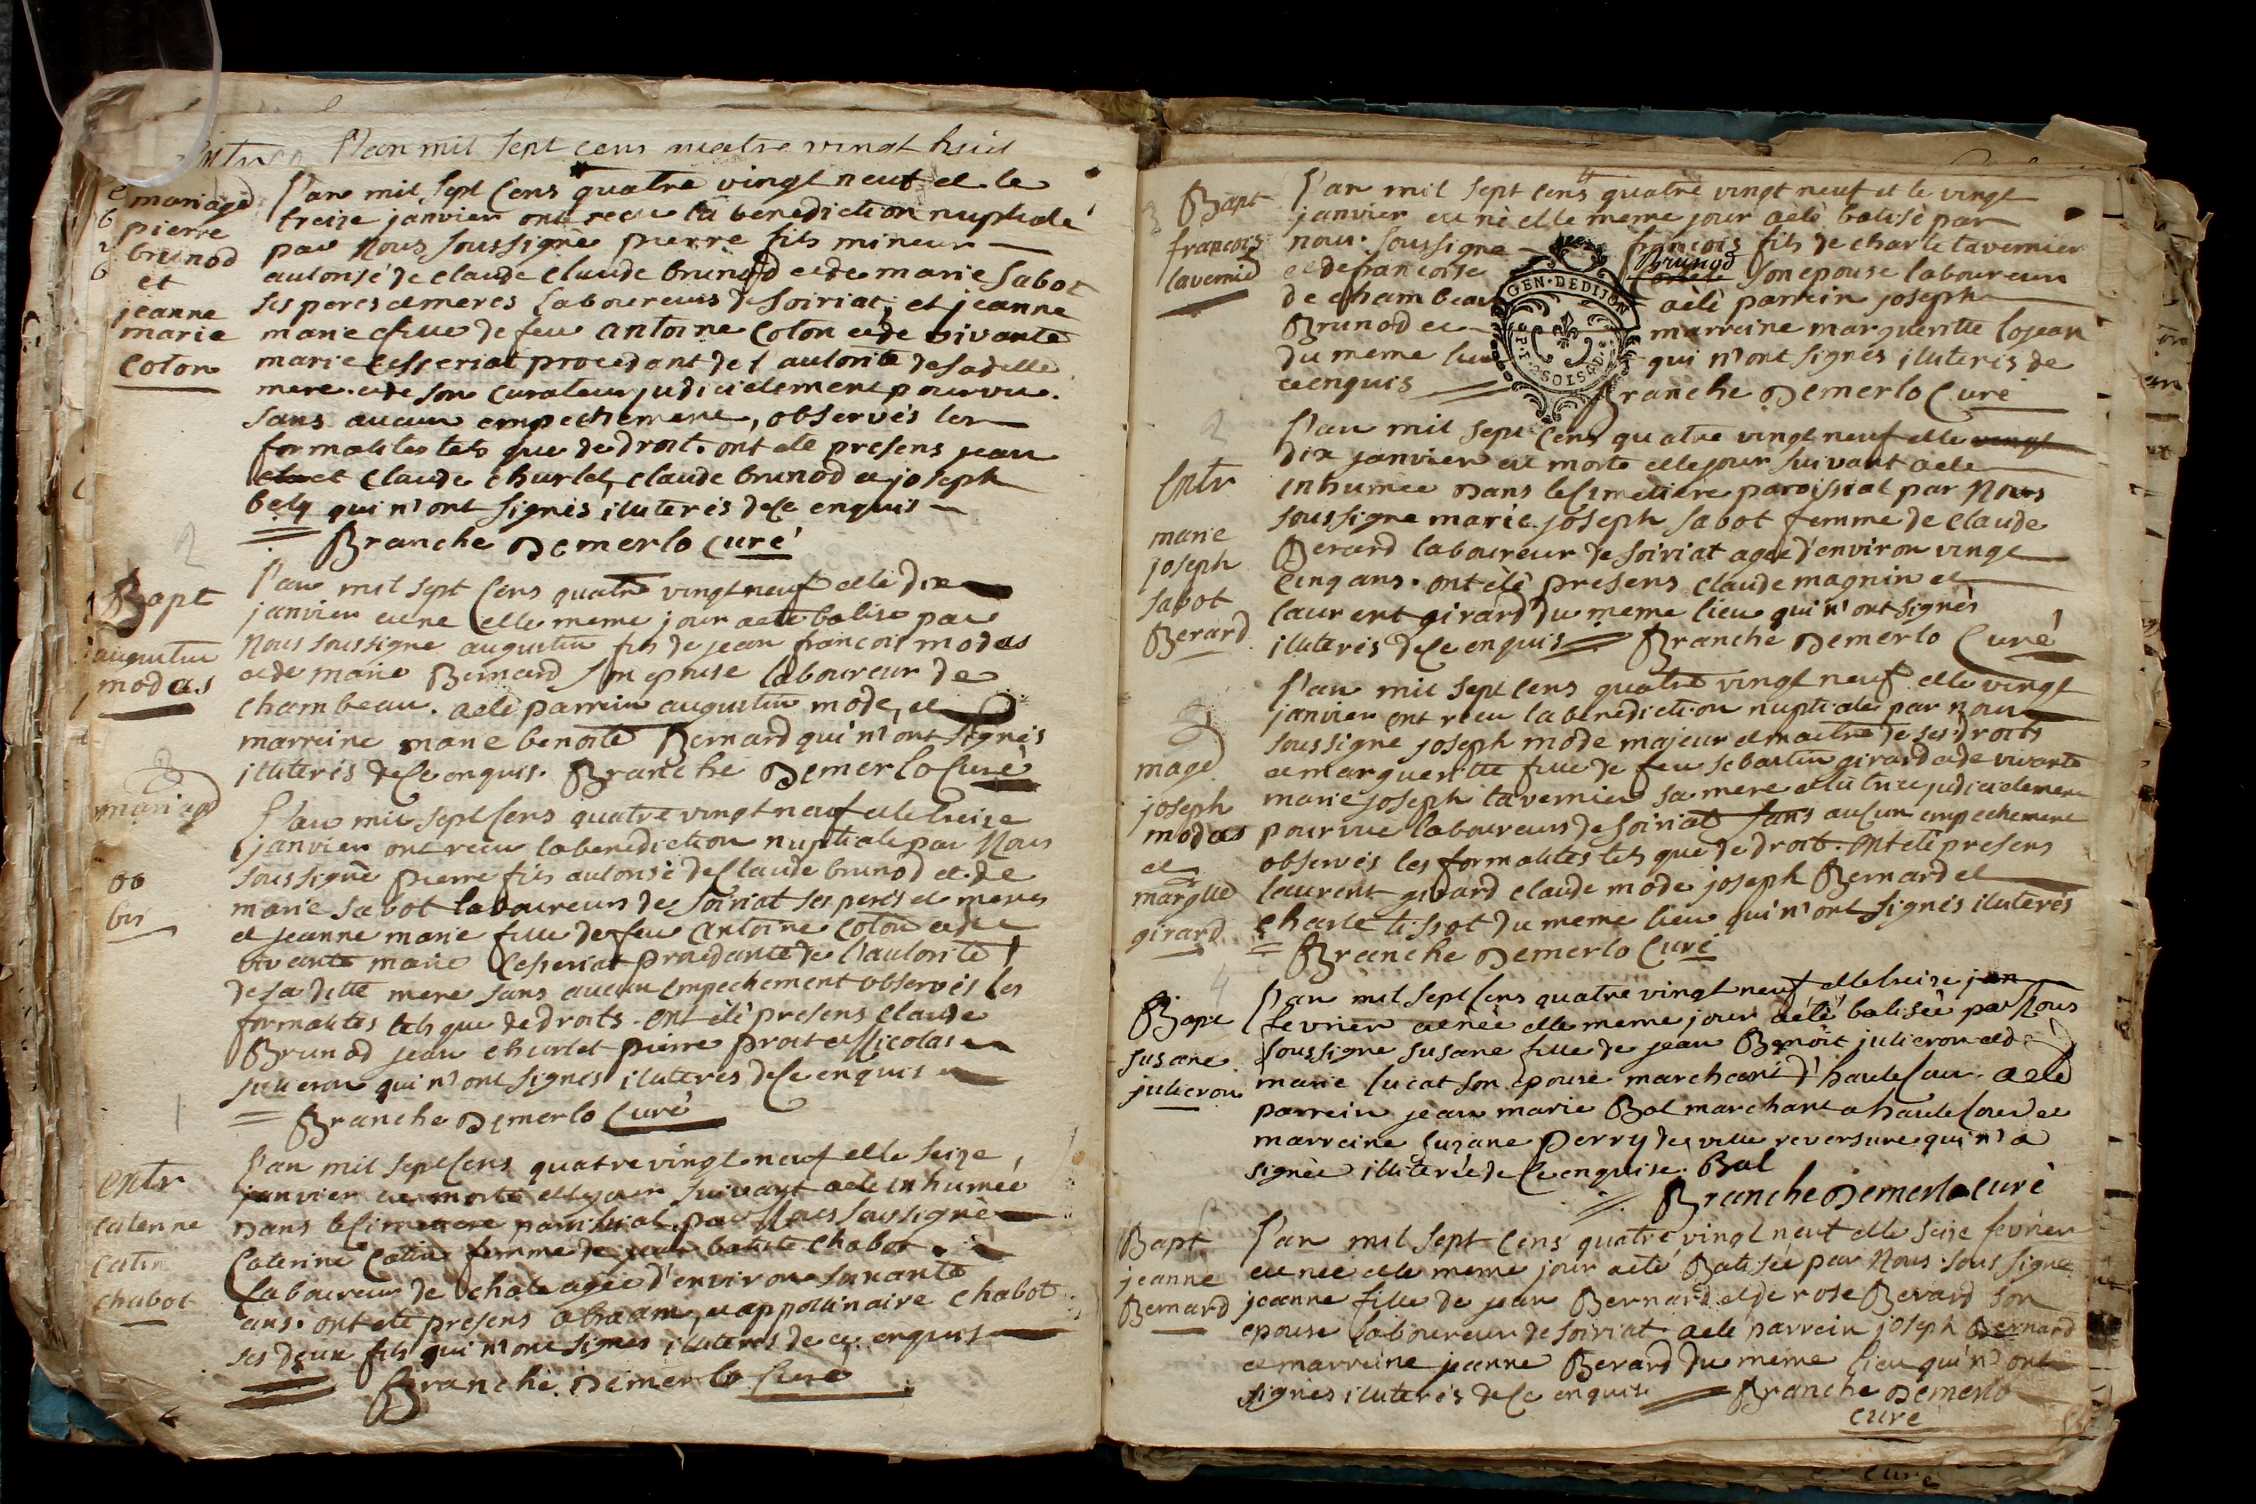 l'an mil sept cens quatre vingt huit
mariage
pierre
brunod
et
jeanne
marie
coton
l'an mil sept cens quatre vingt neuf et le
treize janvier ont recu la benediction nuptiale
par nous soussigné pierre fils mineur
autorisé de claude claude brunod et de marie sabot
ses peres et meres laboureurs de soiriat, et jeanne
marie fille de feu antoine coton et de vivante
marie cesseriat procedant de l autorité de sa dite
mere et de son curateur judicielement pourvue.
sans aucun empechement, observés les
formalites tels que de droit. ont eté presens jean
claude churlet, claude brunod et joseph
bely qui n'ont signés illuterés de ce enquis
Branche Demerlo curé
2
Bapt
augustin
modas
l'an mil sept cens quatre vingt neuf et le dix
janvier est né et le meme jour a eté batisé par
nous soussigné augustin fils de jean francois modas
et de marie Bernard son epouse laboureur de
chambeau. a eté parrein augustin mode, et
marreine marie benoite Bernard qui n'ont signés
illuterés de ce enquis. Branche Demerlo Curé
mariage
bis
l'an mil sept cens quatre vingt neuf et le treize
janvier ont recu la benediction nuptiale par Nous
soussigné pierre fils autorisé de Claude brunod et de
marie sabot laboureurs de soiriat ses peres et meres
et jeanne marie fille de feu antoine coton et de
vivante marie Cesseriat procedante de l'autorité
de sa dite mere sans aucun empechement observés les
formalites tels que de droits. ont eté presens claude
Brunod jean churlet pierre proit et Nicolas
julieron qui n'ont signés illuterés de ce enquis
Branche Demerlo Curé
1
entr
caterine
catin
chabot
l'an mil sept cens quatre vingt neuf et le seize
janvier est morte et le jour suivant a eté inhumée
Dans le cimetiere paroissial par Nous soussigné
Caterine Catin femme de jean batiste Chabot
laboureur de chale agée d'environ soixante
ans. ont eté presens abraam, et appollinaire chabot
ses deux fils qui n'ont signés illuterés de ce enquis
Branche Demerlo Curé
Bapt
francois
tavernié
l'an mil sept cens quatre vingt neuf et le vingt
janvier est né et le meme jour a eté batisé par
nous soussigné francois fils de charle tavernier
et de francoise Brunod son epouse laboureur
de chambeau a eté parrein joseph
Brunod et marreine marguerite lojean
du meme lieu qui n'ont signés illuterés de
ce enquis Branche Demerlo Curé
GEN. DE DIJON
2
Entr
marie
joseph
sabot
Berard
l'an mil sept cens quatre vingt neuf et le vingt
dix janvier est morte et le jour suivant a eté
inhumée Dans le cimetiere paroissial par Nous
soussigné marie joseph sabot femme de claude
Berard laboureur de soiriat agée d'environ vingt
cinq ans. ont eté presens claude magnin et
laurent girard du meme lieu qui n'ont signés
illuterés de ce enquis Branche Demerlo Curé
3
mage
joseph
modas
et
margtte
girard
l'an mil sept cens quatre vingt neuf et le vingt
janvier ont recu la benediction nuptiale par nous
soussigné joseph mode majeur et maitre de ses droits
et marguerite fille de feu sebastien girard et de vivante
marie joseph tavernier sa mere et tutrice judicielement
pourvue laboureurs de soiriat sans aucun empechement
observés les formalites tels que de droit. ont eté presens
laurent girard claude mode joseph Bernard et
charle tissot du meme lieu qui n'ont signés illuterés
Branche Demerlo Curé
4
Bapt
susane
julieron
l'an mil sept cens quatre vingt neuf et le treize jan
fevrier est née et le meme jour a eté batisée par Nous
soussigné susane fille de jean Benoit julieron et de
marie lucat son epouse marchand d'hautecour. a eté
parrein jean marie Bal marchant a hautecour et
marreine suzane perry de ville reversure qui n'a
signée illiterée de ce enquise. Bal
Branche Demerlo Curé
Bapt
jeanne
Bernard
l'an mil sept cens quatre vingt neuf et le seize fevrier
est née et le meme jour a eté Batisée par Nous soussigné
jeanne fille de jean Bernard et de rose Berard son
epouse laboureur de soiriat a eté parrein joseph Bernard
et marreine jeanne Berard du meme lieu qui n'ont
signés illuterés de ce enquis Branche Demerlo
curé
curé